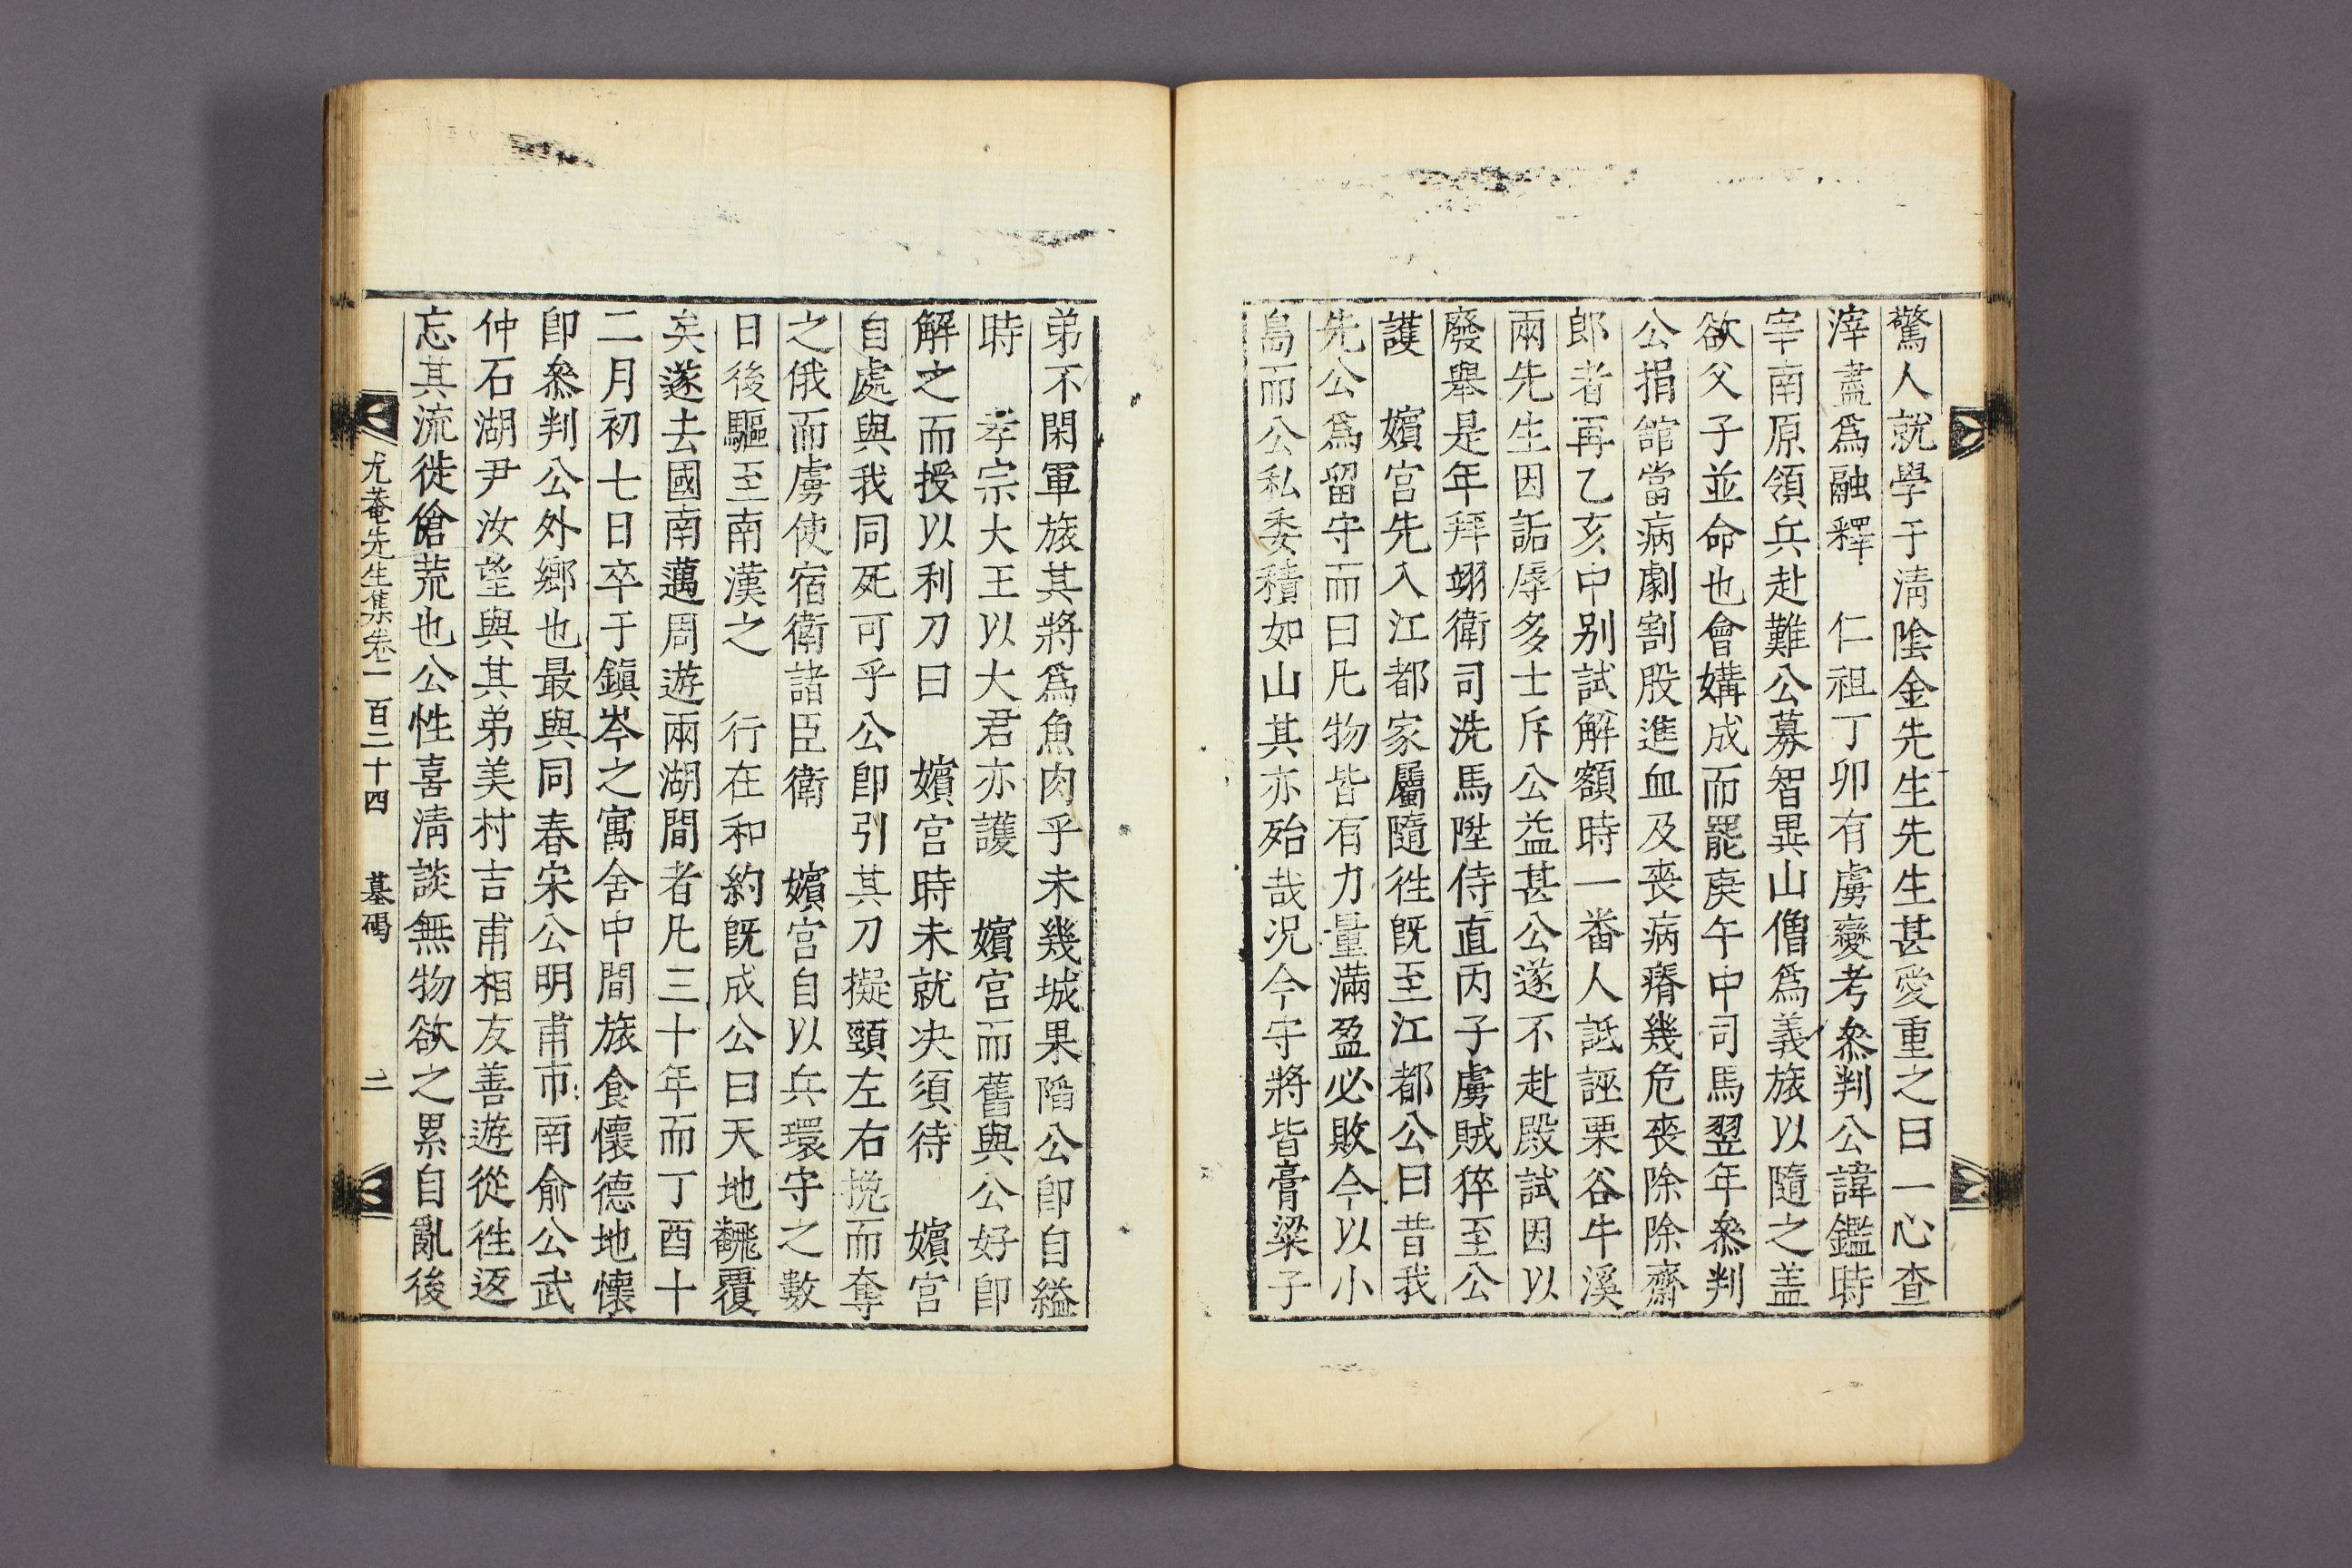 驚人就學于淸陰金先生先生甚愛重之曰一心查
滓盡爲融釋 仁祖丁卯有虜變考叅判公諱鑑時
宰南原領兵赴難公募智異山僧爲義旅以隨之盖
欲父子並命也會媾成而罷庚午中司馬翌年叅判
公捐舘當病劇割股進血及喪病瘠幾危喪除除齋
郞者再乙亥中别試解額時一番人詆誣栗谷牛溪
兩先生因詬辱多士斥公益甚公遂不赴殿試因以
廢舉是年拜翊衛司洗馬陞侍直丙子虜賊猝至公
護 嬪宮先入江都家屬隨徃旣至江都公曰昔我
先公爲留守而曰凡物皆有力量滿盈必敗今以小
島而公私委積如山其亦殆哉况今守將皆膏粱子
弟不閑軍旅其將爲魚肉乎未幾城果䧟公卽自縊
時 孝宗大王以大君亦護 嬪宮而舊與公好卽
解之而授以利刀曰 嬪宮時未就决須待 嬪宮
自處與我同死可乎公卽引其刀擬頸左右挽而奪
之俄而虜使宿衛諸臣衛 嬪宮自以兵環守之數
日後驅至南漢之 行在和約旣成公曰天地飜覆
矣遂去國南邁周遊兩湖間者凡三十年而丁酉十
二月初七日卒于鎭岑之寓舍中間旅食懷德地懷
卽叅判公外鄕也最與同春宋公明甫市南俞公武
仲石湖尹汝望與其弟美村吉甫相友善遊從徃返
忘其流徙傖荒也公性喜淸談無物欲之累自亂後
尤菴先生集卷一百二十四 墓碣 二